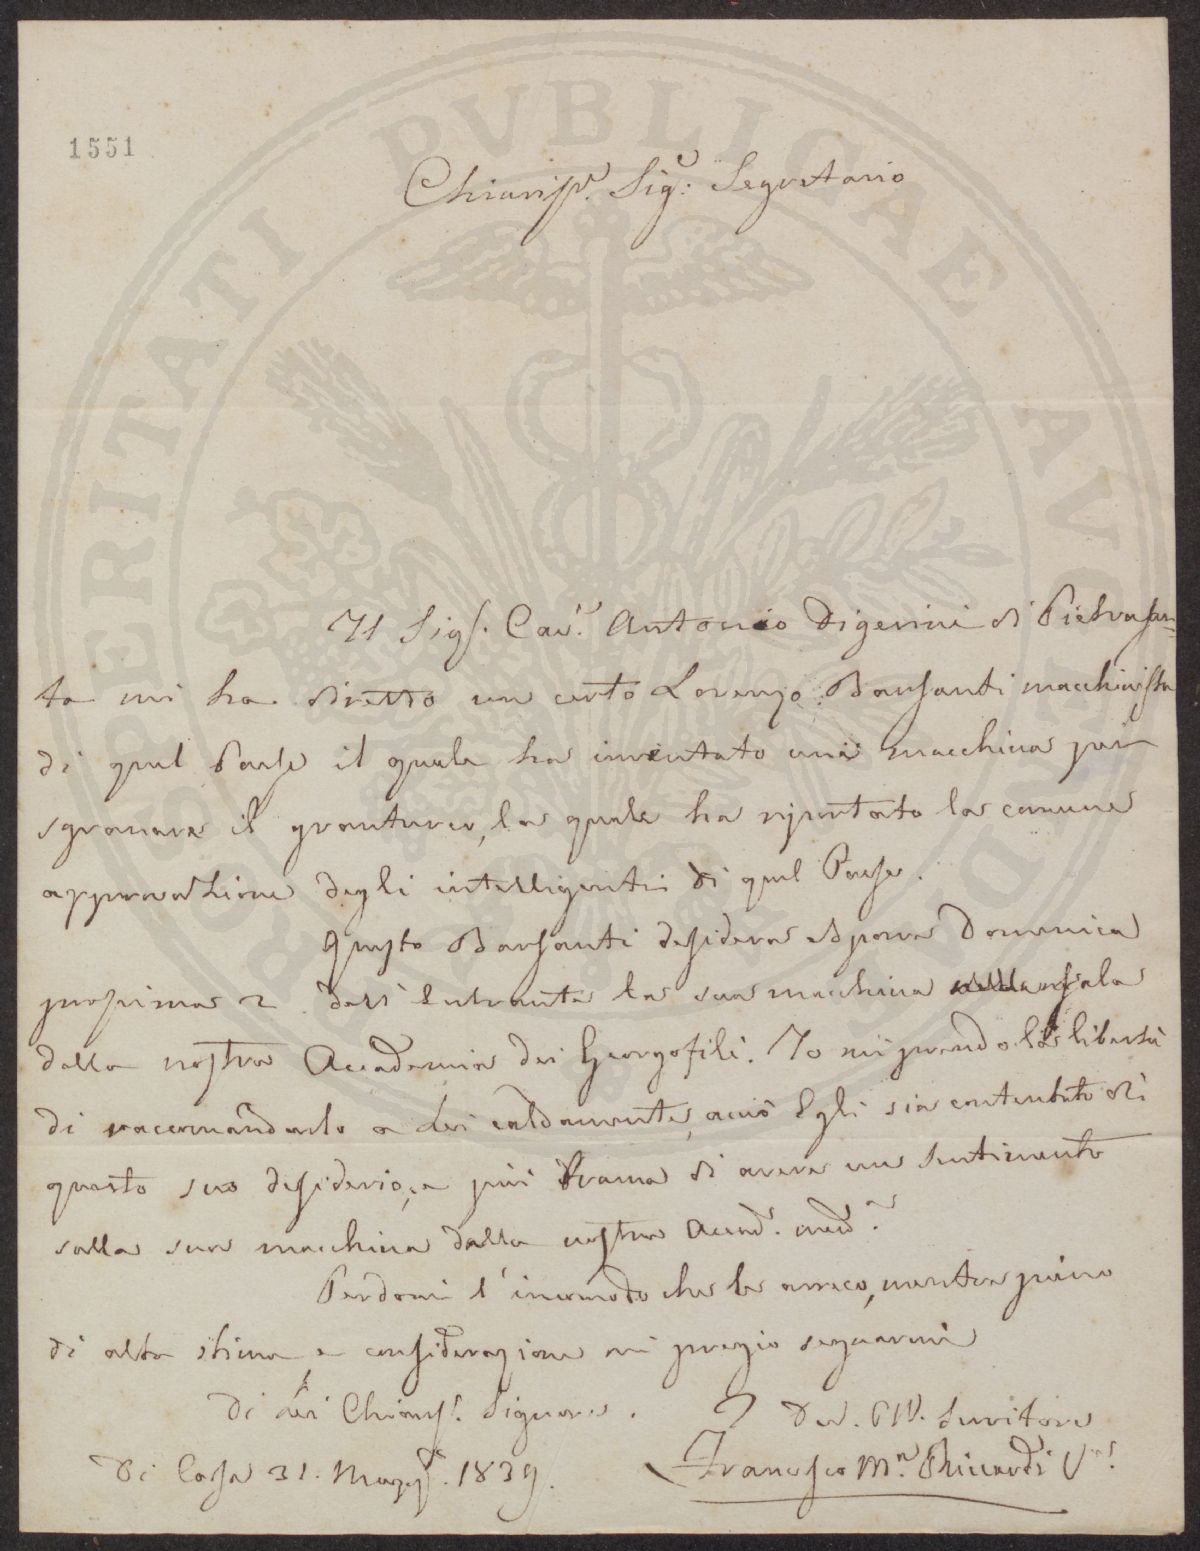 PROSPERITATI PVBLICAE AVGENDAE
1551
Chiariss.e Sig.e Segretario
Il Sig.r Cav.e Antonio Digerini di Pietrasan-
ta mi ha diretto un certo Lorenzo Barsanti macchinista
di quel Paese il quale ha inventato una macchina per
sgranare il granturco, la quale ha riportato la comune
approvazione degli intelligenti di quel Paese.
Questo Barsanti desidera esporre Domenica
prossima 2 dell'entrante la sua macchina nella sala
della nostra Accademia dei Georgofili. Io mi prendo la libertà
di raccomandarlo a Lei caldamente, acciò Egli sia contentato di
questo suo desiderio, e più brama di avere un sentimento
sulla sua macchina dalla nostra Accad.a med.a
Perdoni l'incomodo che le arreco, mentre pieno
di alta stima e considerazione mi pregio segnarmi
Di Lei Chiariss. Signore.
Dev. Obb. Servitore
Di Casa 31. Magg. 1839.
Francesco M.a Riccardi V.